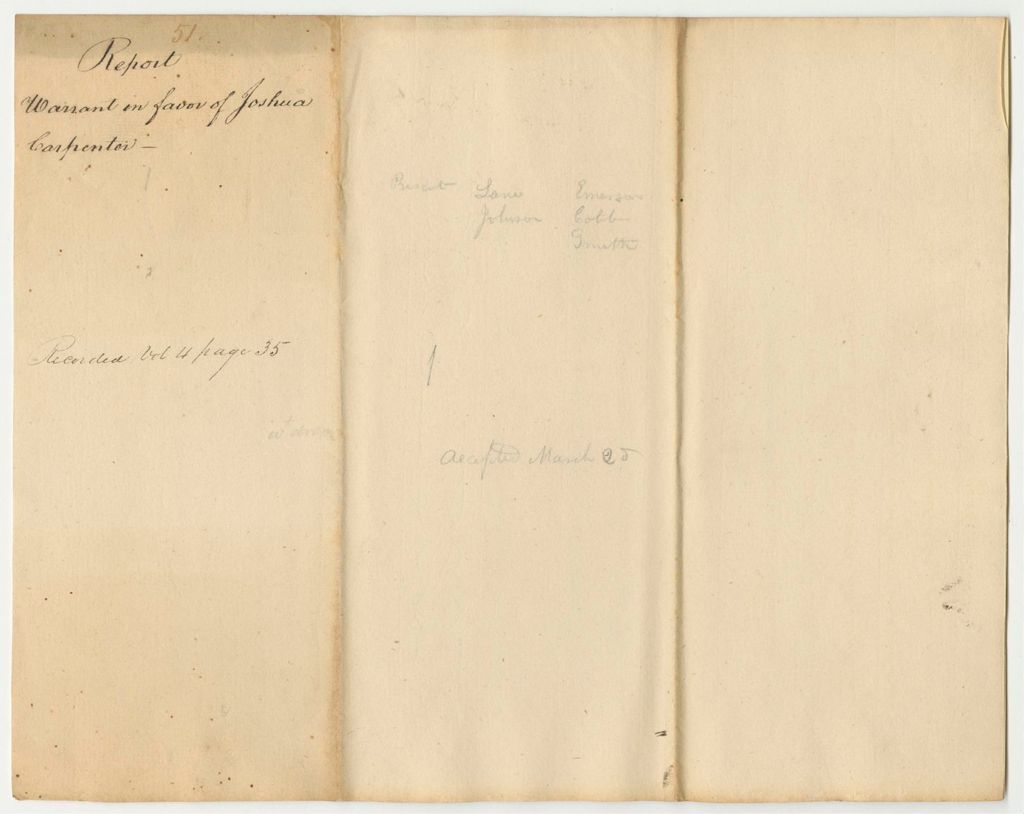 51.
Report
Warrant in favor of Joshua
Carpenter —
Recorded Vol 4 page 35
Present Lane Emerson
Johnson Cobb
Smith
Accepted March 25